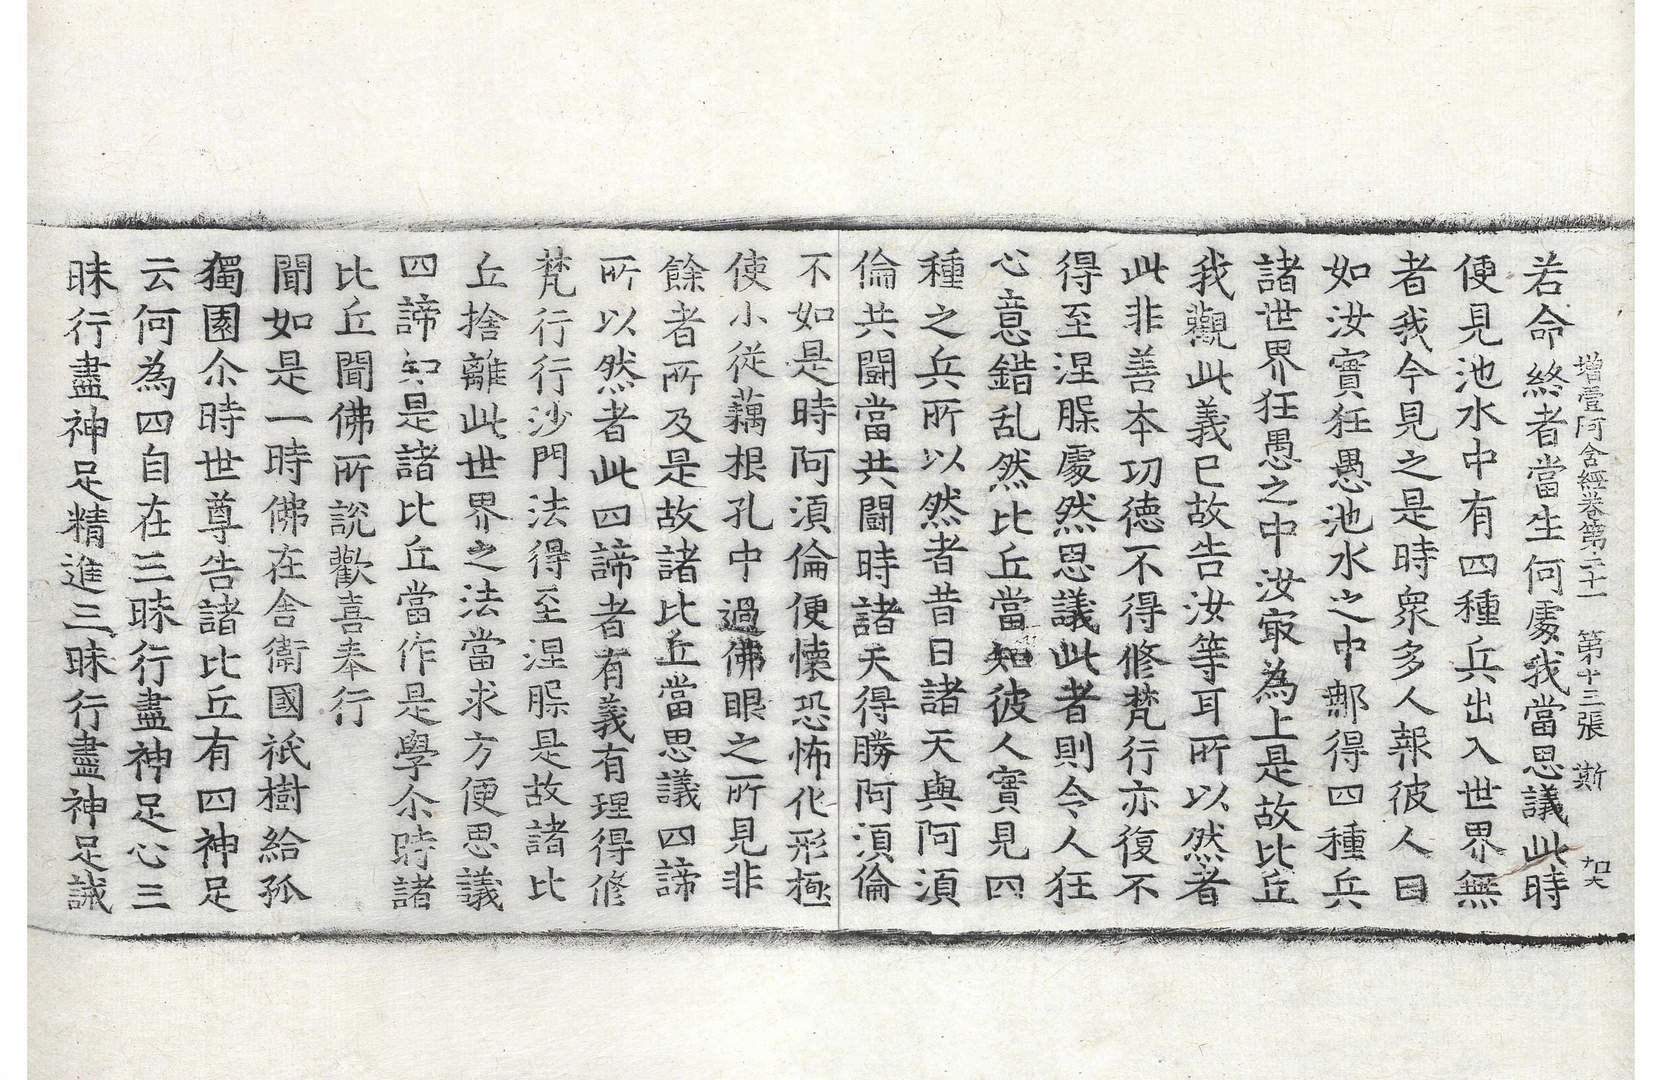 增壹阿含經卷第二十一 第十三張 斯
若命終者當生何處我當思議此時
便見池水中有四種兵出入世界無
者我今見之是時衆多人報彼人曰
如汝實狂愚池水之中鄁得四種兵
諸世界狂愚之中汝㝡為上是故比丘
我觀此義已故告汝等耳所以然者
此非善本功德不得修梵行亦復不
得至涅槃處然思議此者則令人狂
心意錯乱然比丘當知彼人實見四
種之兵所以然者昔日諸天與阿須
倫共鬪當共鬪時諸天得勝阿須倫
不如是時阿須倫便懷恐怖化形極
使小從藕根孔中過佛眼之所見非
餘者所及是故諸比丘當思議四諦
所以然者此四諦者有義有理得修
梵行行沙門法得至涅槃是故諸比
丘捨離此世界之法當求方便思議
四諦知是諸比丘當作是學尒時諸
比丘聞佛所說歡喜奉行
聞如是一時佛在舍衞國祇樹給孤
獨園尒時世尊告諸比丘有四神足
云何為四自在三昧行盡神足心三
昧行盡神足精進三昧行盡神足誡